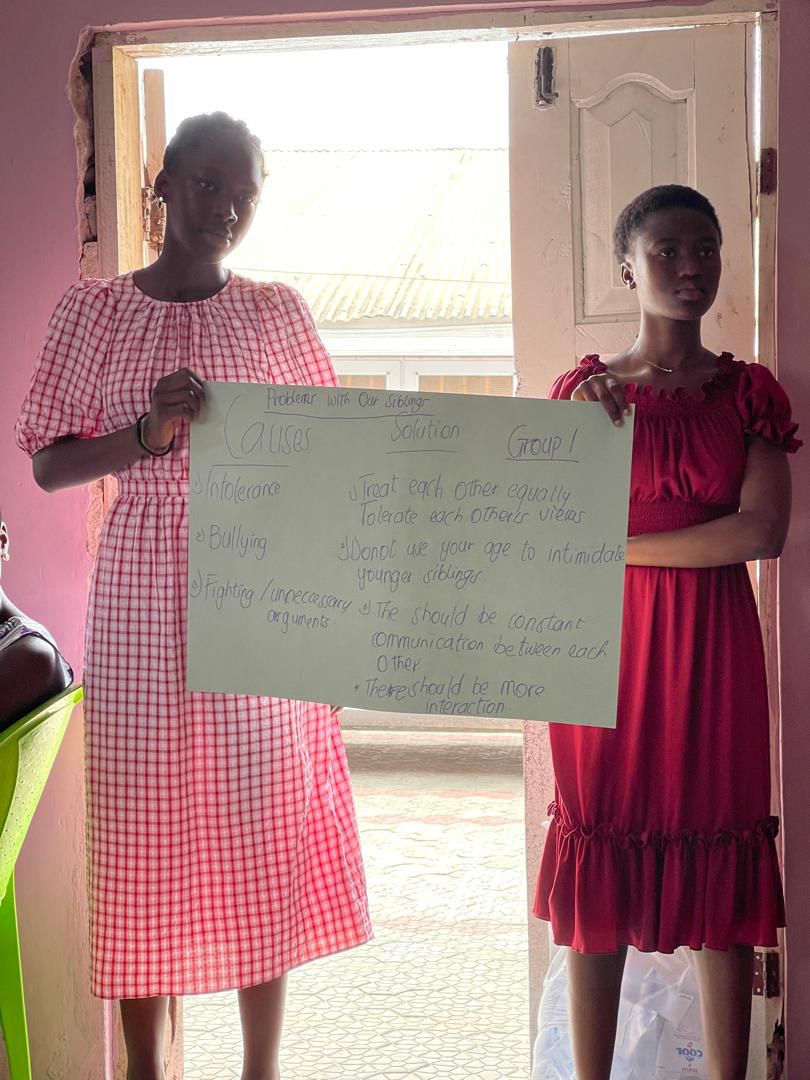 Problems with Our Siblings
Causes
Solution
Group 1
1) Intolerance
2) Bullying
3) Fighting / unnecessary
arguments
1) Treat each other equally
Tolerate each other's views
2) Donot use your age to intimidate
younger siblings.
3) The should be constant
communication between each
Other
* There should be more
interaction
COOr